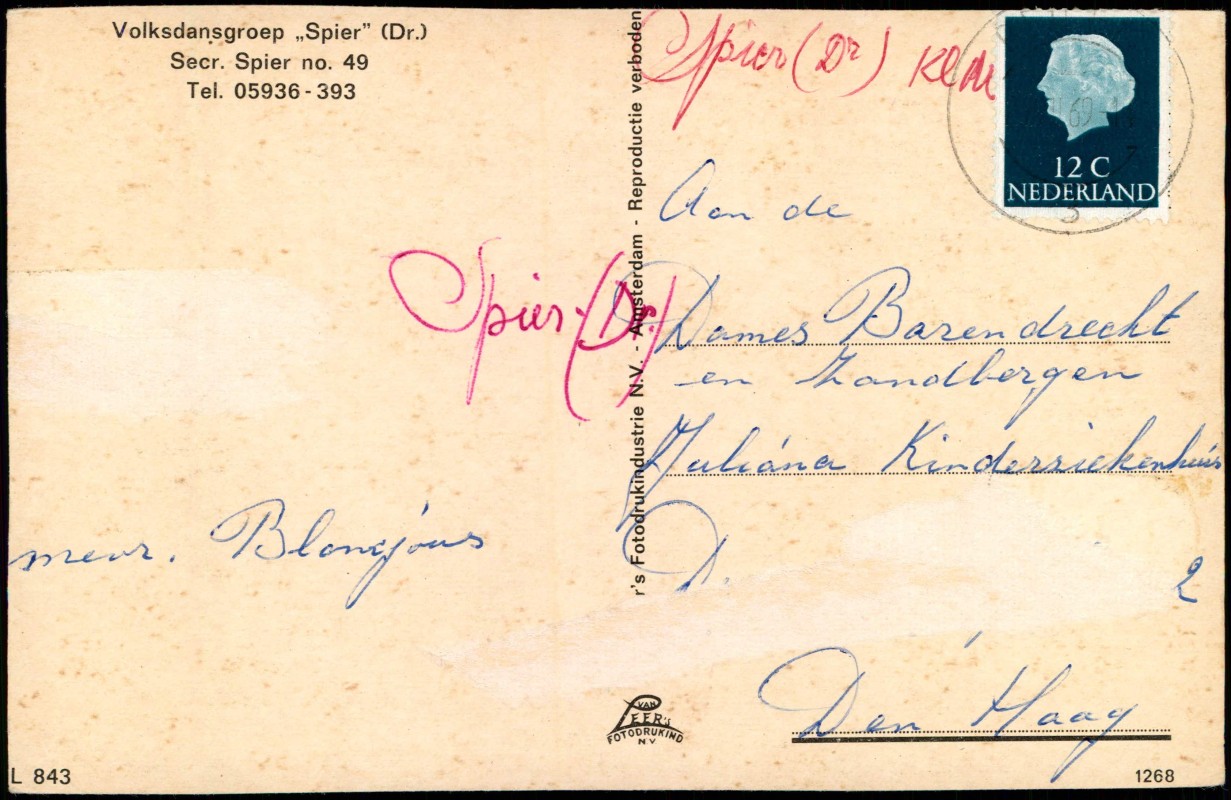 Volksdansgroep „Spier” (Dr.)
Secr. Spier no. 49
Tel. 05936-393
Spier (Dr)
12 C
NEDERLAND
Aan de
Spier. (Dr.)
Dames Barendrecht
en Zandbergen
Juliána Kinderziekenhuis
D.
2
mevr. Blanejous
Den Haag
r's Fotodrukindustrie N.V. - Amsterdam - Reproductie verboden
VAN
LEER's
FOTODRUKIND
N.V
L 843
1268